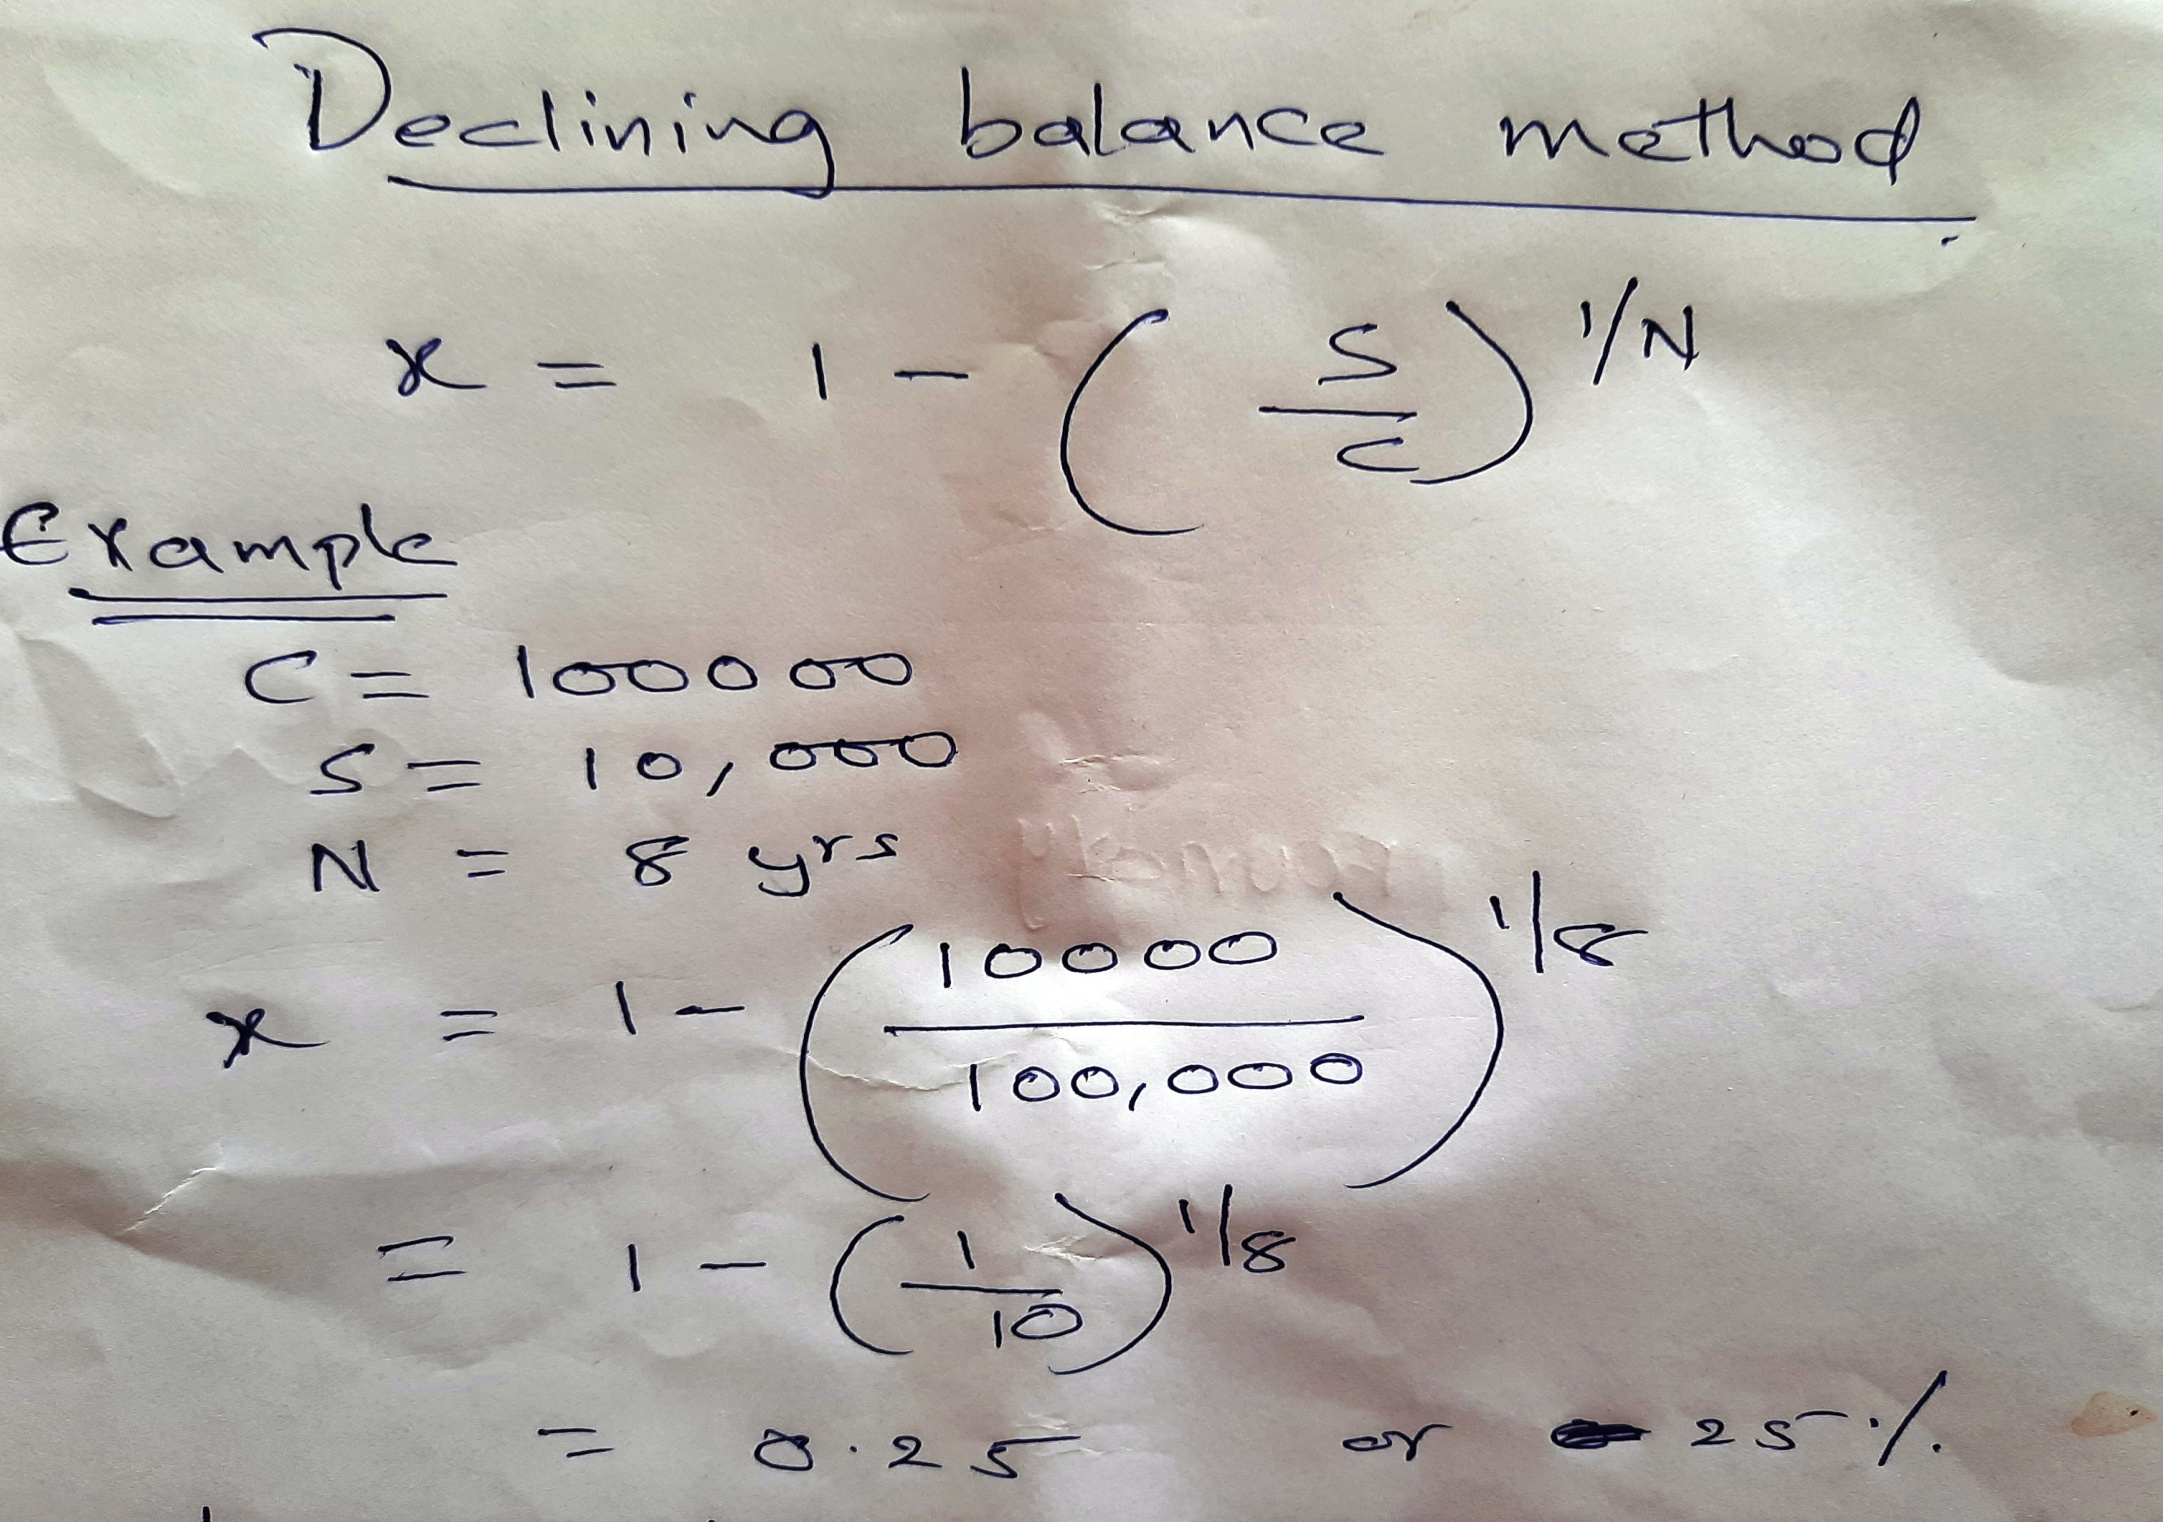 Declining balance method
x = 1 - (S/C)^1/N
Example
C = 100000
S = 10,000
N = 8 yrs
x = 1 - (10000/100,000)^1/8
= 1 - (1/10)^1/8
= 0.25 or 25%